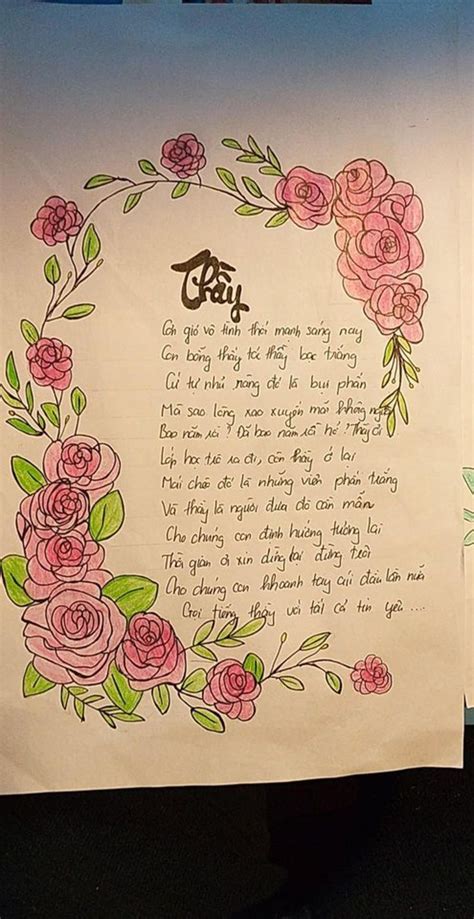 Thầy
Cơn gió vô tình thổi mạnh sáng nay
Con bỗng thấy tóc thầy bạc trắng
Cứ tự nhủ rằng đó là bụi phấn
Mà sao lòng xao xuyến mãi không nguôi
Bao năm rồi? Đã bao năm rồi hở? Thầy ơi
Lớp học trò ra đi, còn thầy ở lại
Mái chèo đó là những viên phấn trắng
Và thầy là người đưa đò cần mẫn
Cho chúng con định hướng tương lai
Thời gian ơi xin dừng lại đừng trôi
Cho chúng con khoanh tay cúi đầu lần nữa
Gọi tiếng thầy với tất cả tin yêu ....